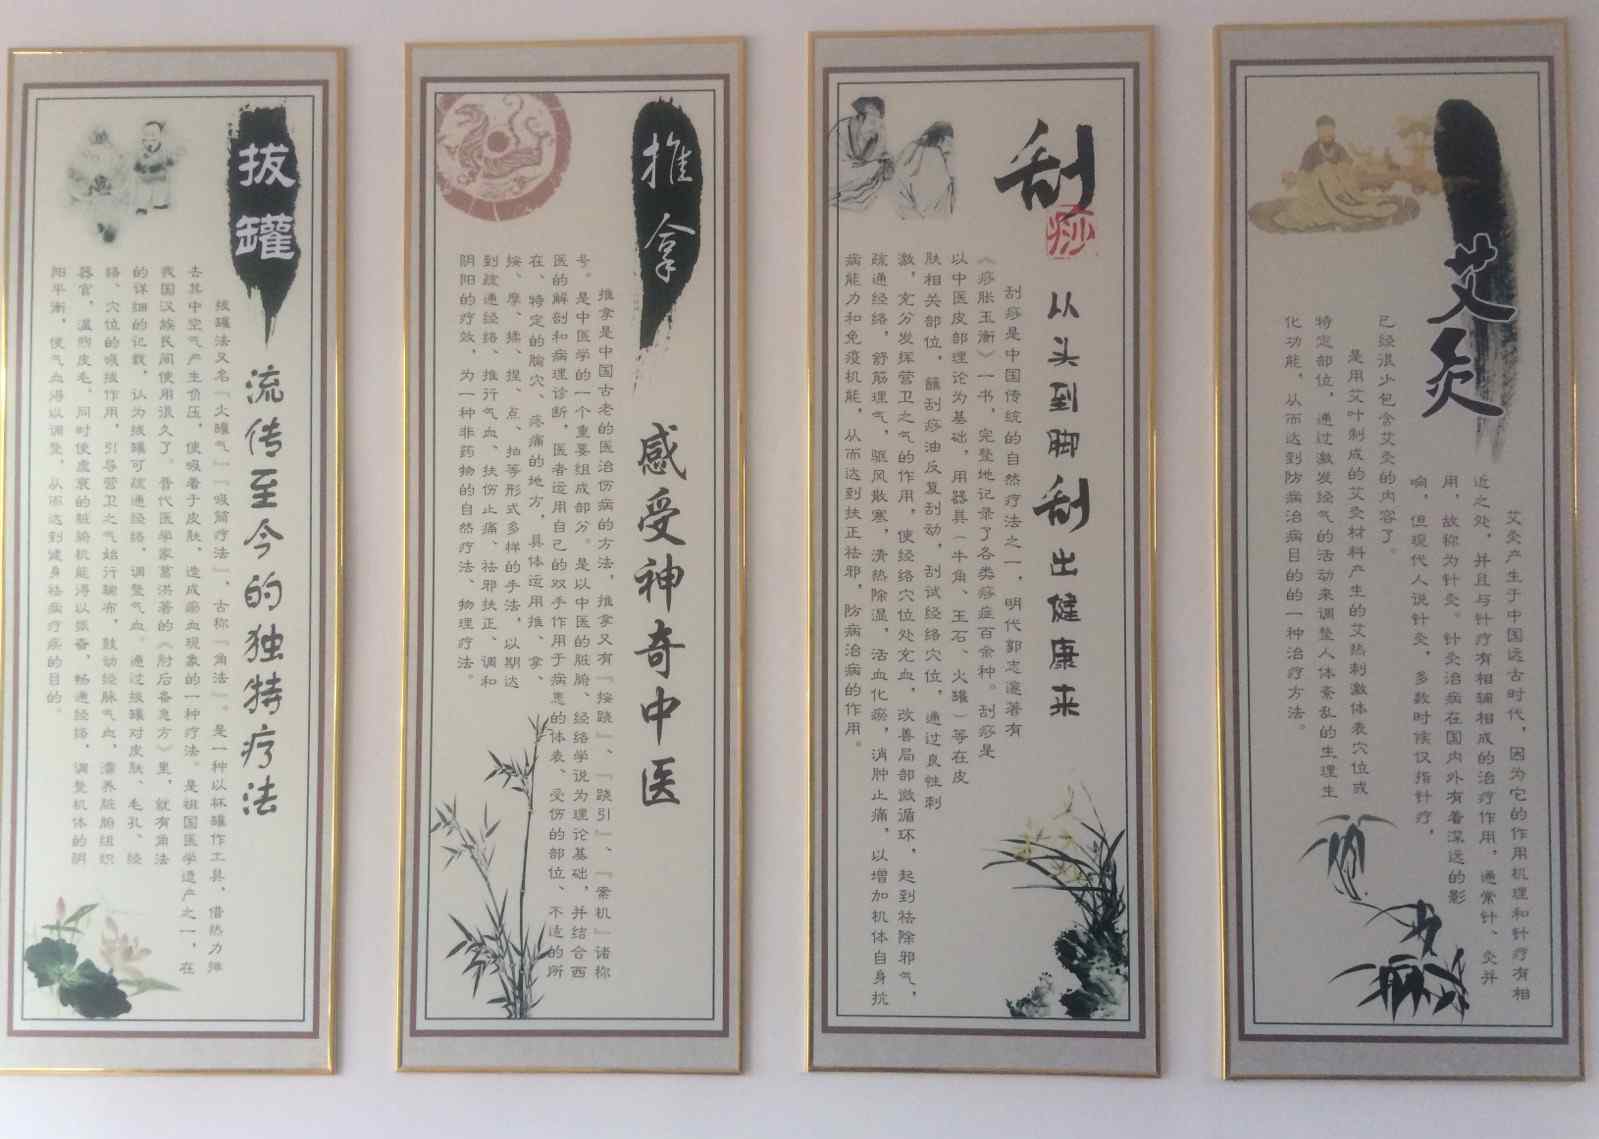 拔罐
流传至今的独特疗法
拔罐法又名『火罐气』『吸筒疗法』，古称『角法』。是一种以杯罐作工具，借热力排
去其中空气产生负压，使吸着于皮肤，造成瘀血现象的一种疗法。是祖国医学遗产之一，在
我国汉族民间使用很久了。晋代医学家葛洪著的《肘后备急方》里，就有角法
的详细的记载，认为拔罐可疏通经络，调整气血。通过拔罐对皮肤、毛孔、经
络、穴位的吸拔作用，引导营卫之气始行输布，鼓动经脉气血，濡养脏腑组织
器官，温煦皮毛，同时使虚衰的脏腑机能得以振奋，畅通经络，调整机体的阴
阳平衡，使气血得以调整，从而达到健身祛病疗疾的目的。
推拿
感受神奇中医
推拿是中国古老的医治伤病的方法，推拿又有『按跷』、『跷引』、『案杌』诸称
号。是中医学的一个重要组成部分。是以中医的脏腑、经络学说为理论基础，并结合西
医的解剖和病理诊断，医者运用自己的双手作用于病患的体表、受伤的部位、不适的所
在、特定的腧穴、疼痛的地方，具体运用推、拿、
按、摩、揉、捏、点、拍等形式多样的手法，以期达
到疏通经络、推行气血、扶伤止痛、祛邪扶正、调和
阴阳的疗效，为一种非药物的自然疗法、物理疗法。
刮痧
从头到脚刮出健康来
刮痧是中国传统的自然疗法之一，明代郭志邃著有
《痧胀玉衡》一书，完整地记录了各类痧症百余种。刮痧是
以中医皮部理论为基础，用器具（牛角、玉石、火罐）等在皮
肤相关部位，蘸刮痧油反复刮动，刮试经络穴位，通过良性刺
激，充分发挥营卫之气的作用，使经络穴位处充血，改善局部微循环，起到祛除邪气，
疏通经络，舒筋理气，驱风散寒，清热除湿，活血化瘀，消肿止痛，以增加机体自身抗
病能力和免疫机能，从而达到扶正祛邪，防病治病的作用。
艾灸
艾灸产生于中国远古时代，因为它的作用机理和针疗有相
近之处，并且与针疗有相辅相成的治疗作用，通常针、灸并
用，故称为针灸。针灸治病在国内外有着深远的影
响，但现代人说针灸，多数时候仅指针疗，
已经很少包含艾灸的内容了。
是用艾叶制成的艾灸材料产生的艾热刺激体表穴位或
特定部位，通过激发经气的活动来调整人体紊乱的生理生
化功能，从而达到防病治病目的的一种治疗方法。